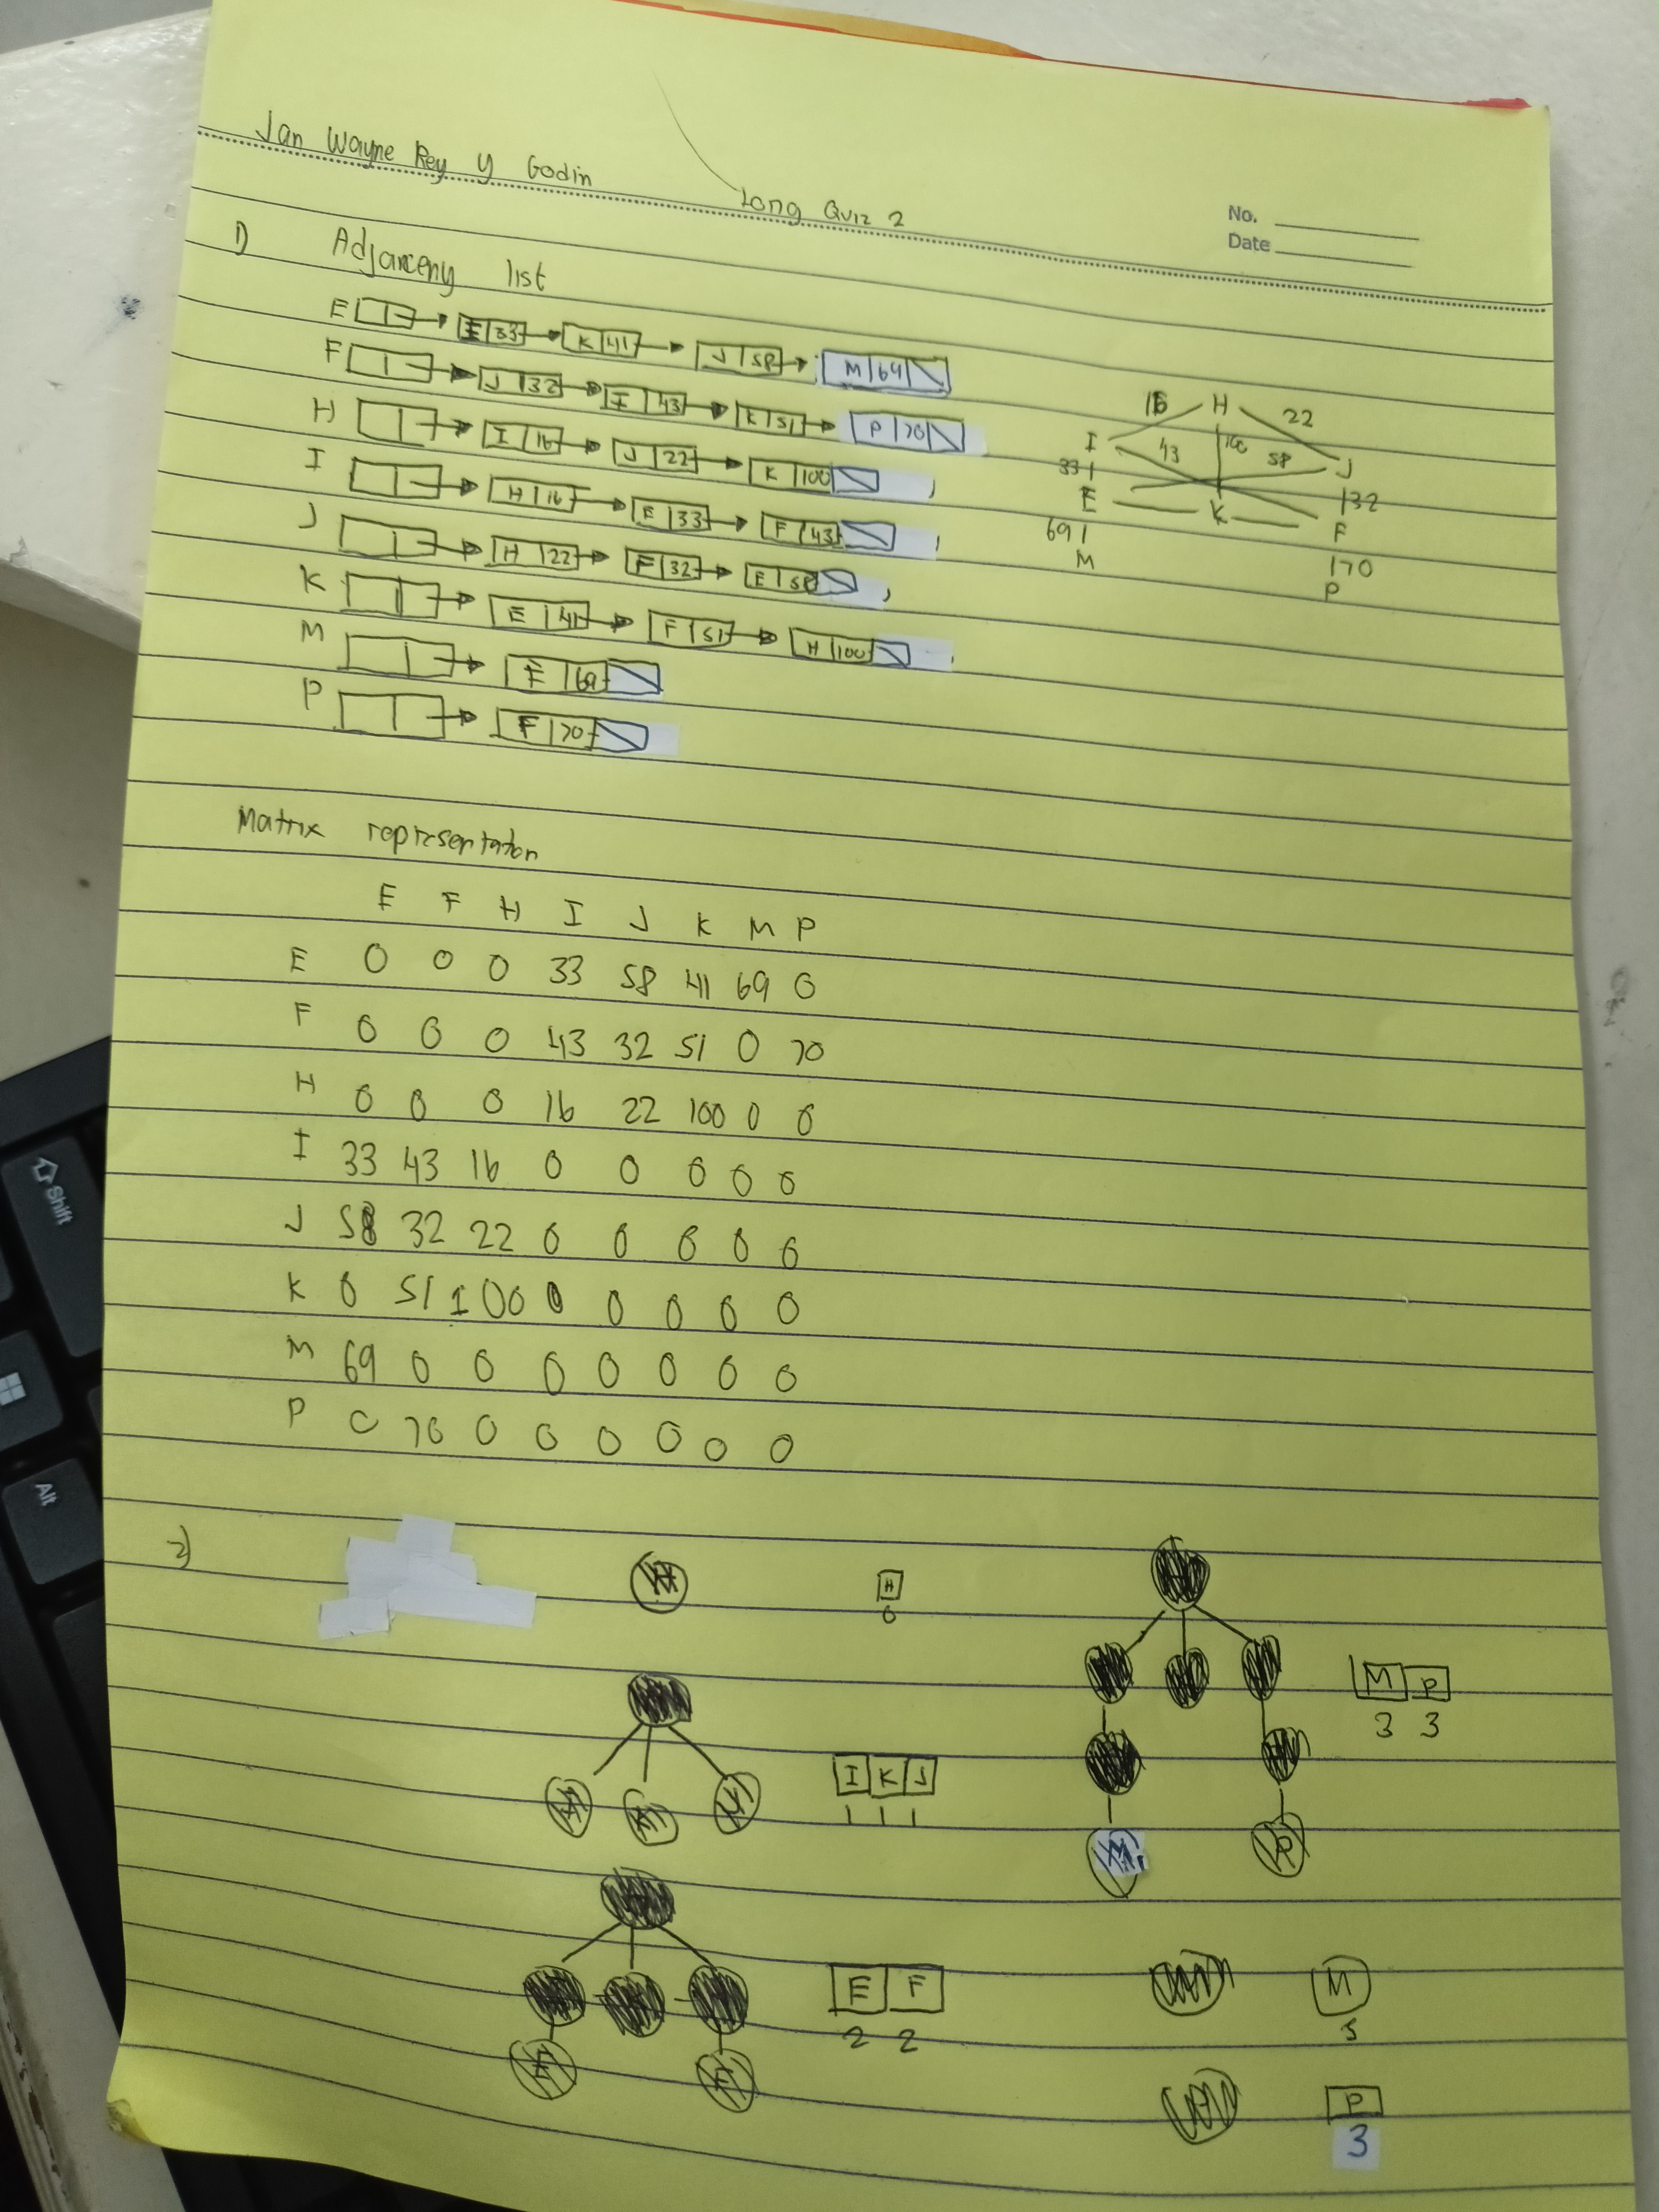 Jan Wayne Rey y Godin
Long Quiz 2
No.
Date
1) Adjanceny list
E → I 33 → K 41 → J 58 → M 69
F → J 32 → I 43 → K 51 → P 70
H → I 16 → J 22 → K 100
I → H 16 → E 33 → F 43
J → H 22 → F 32 → E 58
K → E 41 → F 51 → H 100
M → E 69
P → F 70
16 H 22
I 43 100 58 J
33 32
E K F
69 70
M P
Matrix representation
E F H I J K M P
E 0 0 0 33 58 41 69 0
F 0 0 0 43 32 51 0 70
H 0 0 0 16 22 100 0 0
I 33 43 16 0 0 0 0 0
J 58 32 22 0 0 0 0 0
K 0 51 100 0 0 0 0 0
M 69 0 0 0 0 0 0 0
P 0 70 0 0 0 0 0 0
2)
H
H
0
I K J
1 1 1
E F
2 2
E F
M P
3 3
M P
M
3
P
3
Shift
Alt